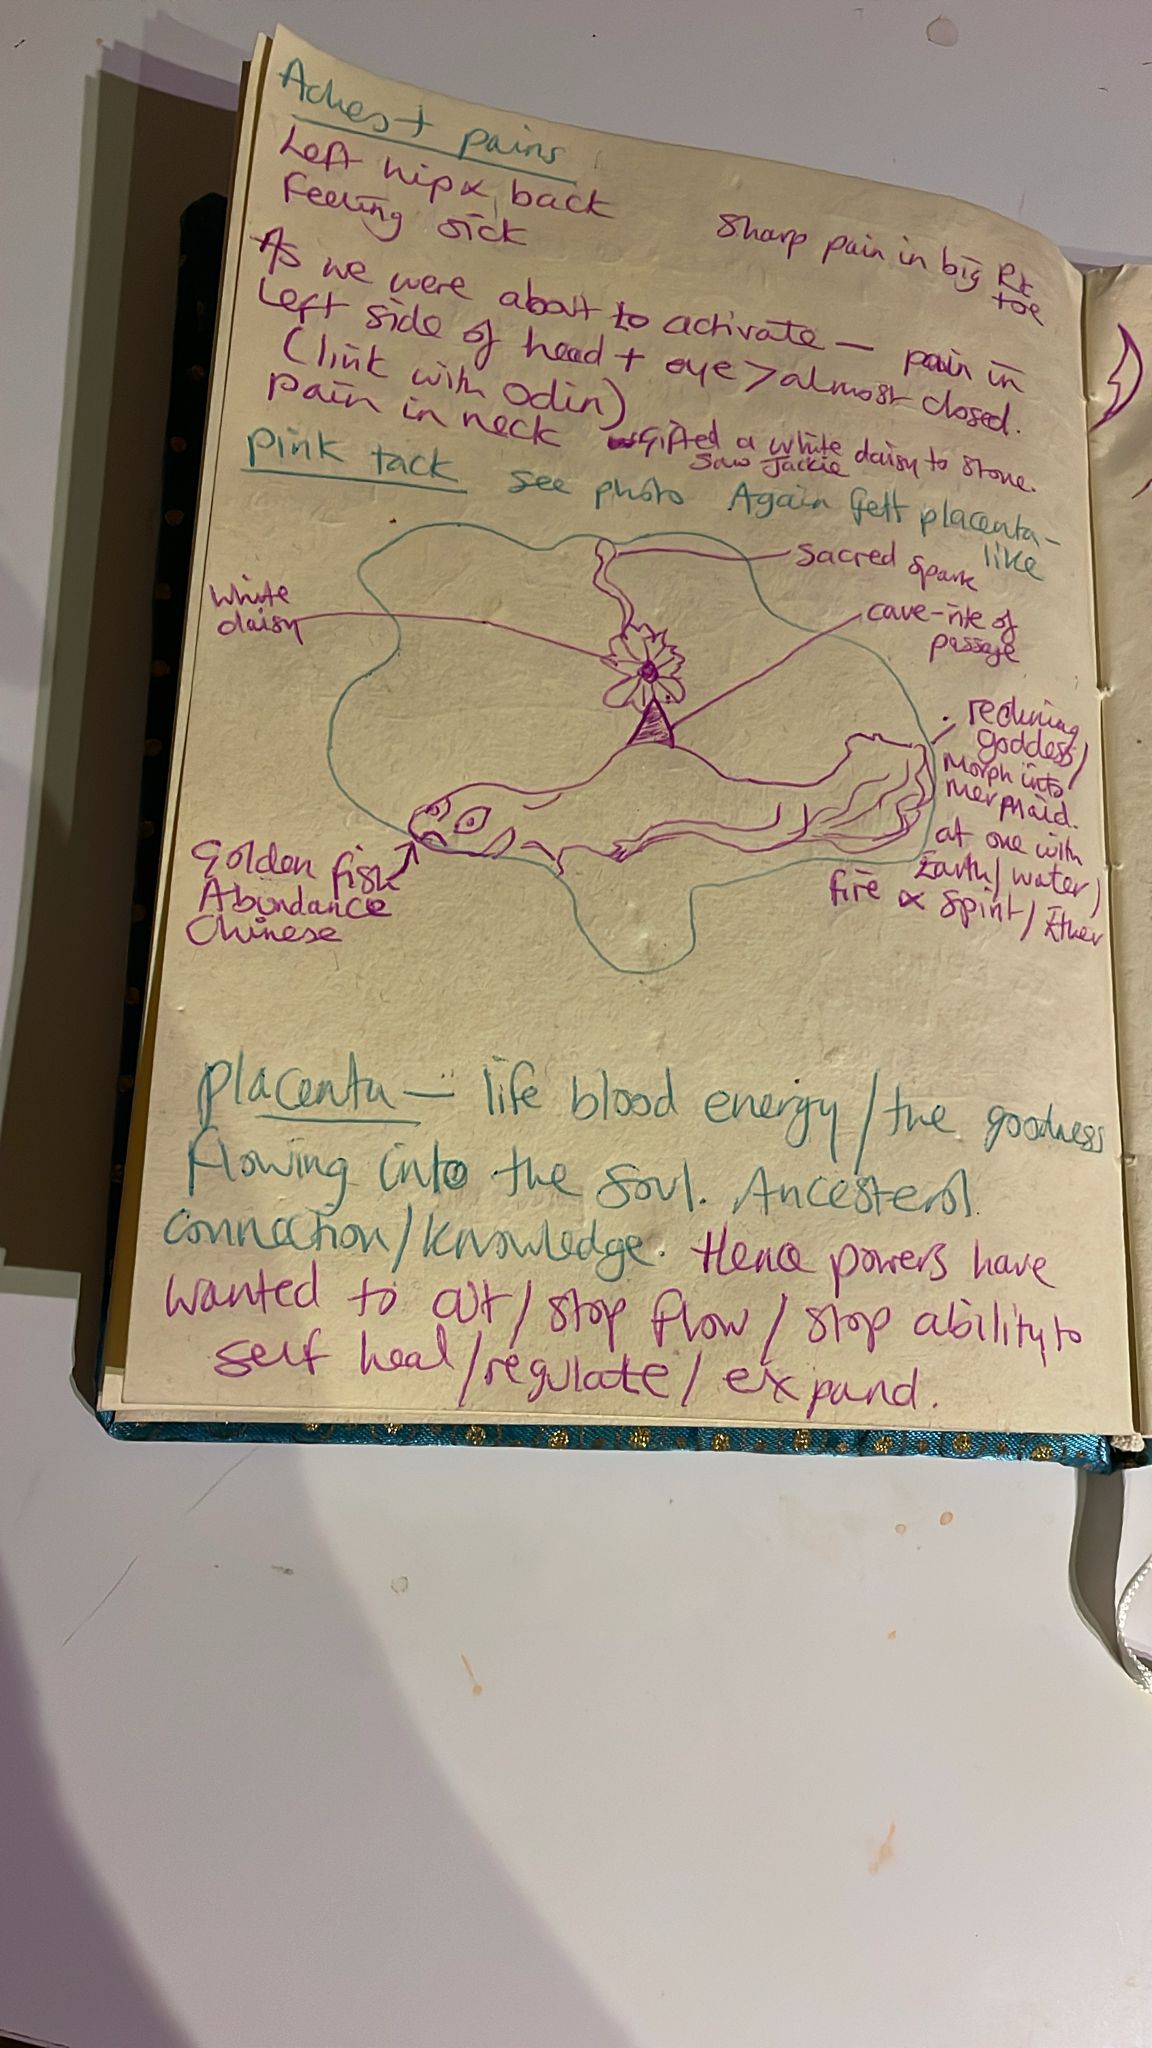 Aches + pains
Left hip & back
Feeling sick
Sharp pain in big Rt
toe
As we were about to activate — pain in
Left side of head + eye > almost closed.
(link with Odin)
pain in neck
Gifted a white daisy to stone.
Saw Jackie
Pink tack see photo Again felt placenta-
like
Sacred spark
White
daisy
cave-rite of
passage
reclining
goddess/
Morph into
mermaid.
at one with
Earth/water/
fire & Spirit/Ether
Golden fish
Abundance
Chinese
Placenta — life blood energy/the goodness
flowing into the soul. Ancesterol
connection/knowledge. Hence powers have
wanted to cut/stop flow/stop ability to
self heal/regulate/expand.